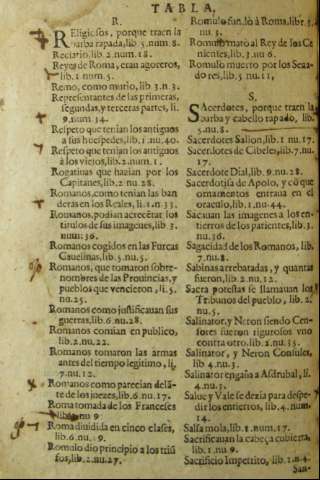 TABLA,
R.
Religiosos, porque traen la
barba rapada, lib. 5. num. 8.
Reciario, lib. 2. num. 18.
Reyes de Roma, eran agoreros,
lib. 1 num. 5.
Remo, como murio, lib. 3. n. 3.
Representantes de las primeras,
segundas, y terceras partes, li.
9. num. 34.
Respeto que tenian los antiguos
a sus huespedes, lib. 1. nu. 40.
Respeto que tenian los antiguos
à los viejos, lib. 2. num. 1.
Rogatiuas que hazian por los
Capitanes, lib. 2. nu 28.
Romanos, como tenian las ban
deras en los Reales, li. 1. n. 33.
Romanos, podian acrecẽtar los
titulos de sus imagenes, lib 3.
num. 36.
Romanos cogidos en las Furcas
Caudinas, lib. 5. nu. 5.
Romanos, que tomaron sobre-
nombres de las Prouincias, y
pueblos que vencieron, li. 5.
nu. 25.
Romanos como justificauan sus
guerras, lib. 6. nu. 28.
Romanos comian en publico,
lib. 2. nu. 22.
Romanos tomaron las armas
antes del tiempo legitimo, li.
7. nu. 12.
Romanos como parecian delã-
te de los juezes, lib. 6. nu. 17.
Roma tomada de los Franceses
lib. nu 9
Roma diuidida en cinco clases,
lib. 6. nu. 19.
Romulo dio principio a los triũ
fos, lib. 2. nu. 27.
Romulo fundò à Roma, libr. 3.
nu. 3.
Romulo mató al Rey de los Ce
nienses, lib. 3. nu 6
Romulo muerto por los Sena-
dores, lib. 3 nu. 11,
S,
Sacerdotes, porque traen la
barba y cabello rapado, lib.
5. nu. 8.
Sacerdotes Salios, lib 1 nu. 17.
Sacerdotes de Cibeles, lib. 7. nu.
17.
Sacerdote Dial, lib. 9. nu. 28.
Sacerdotisa de Apolo, y cõ que
ornamentos entraua en el
oraculo, lib. 1. nu. 44.
Sacauan las imagenes a los en-
tierros de los parientes, lib. 3.
nu. 36.
Sagacidad de los Romanos, lib.
7. nu. 8.
Sabinas arrebatadas, y quantas
fueron, lib. 2. nu. 12.
Sacra potestas se llamauan los
Tribunos del pueblo, lib. 2.
nu. 5.
Salinator, y Neron siendo Cen-
sores fueron rigurosos vno
contra otro. lib. 2. nu. 35.
Salinator, y Neron Consules,
lib 4. nu. 3.
Salinator engaña a Asdrubal, li.
4. nu. 3.
Salue y Vale se dezia para despe-
dir los entierros, lib. 4. num.
14.
Salsa mola, lib. 1. num. 17.
Sacrificauan la cabeça cubierta,
lib. 1. nu. 9.
Sacrificio Impetrito, lib. 1. n. 4.
San-